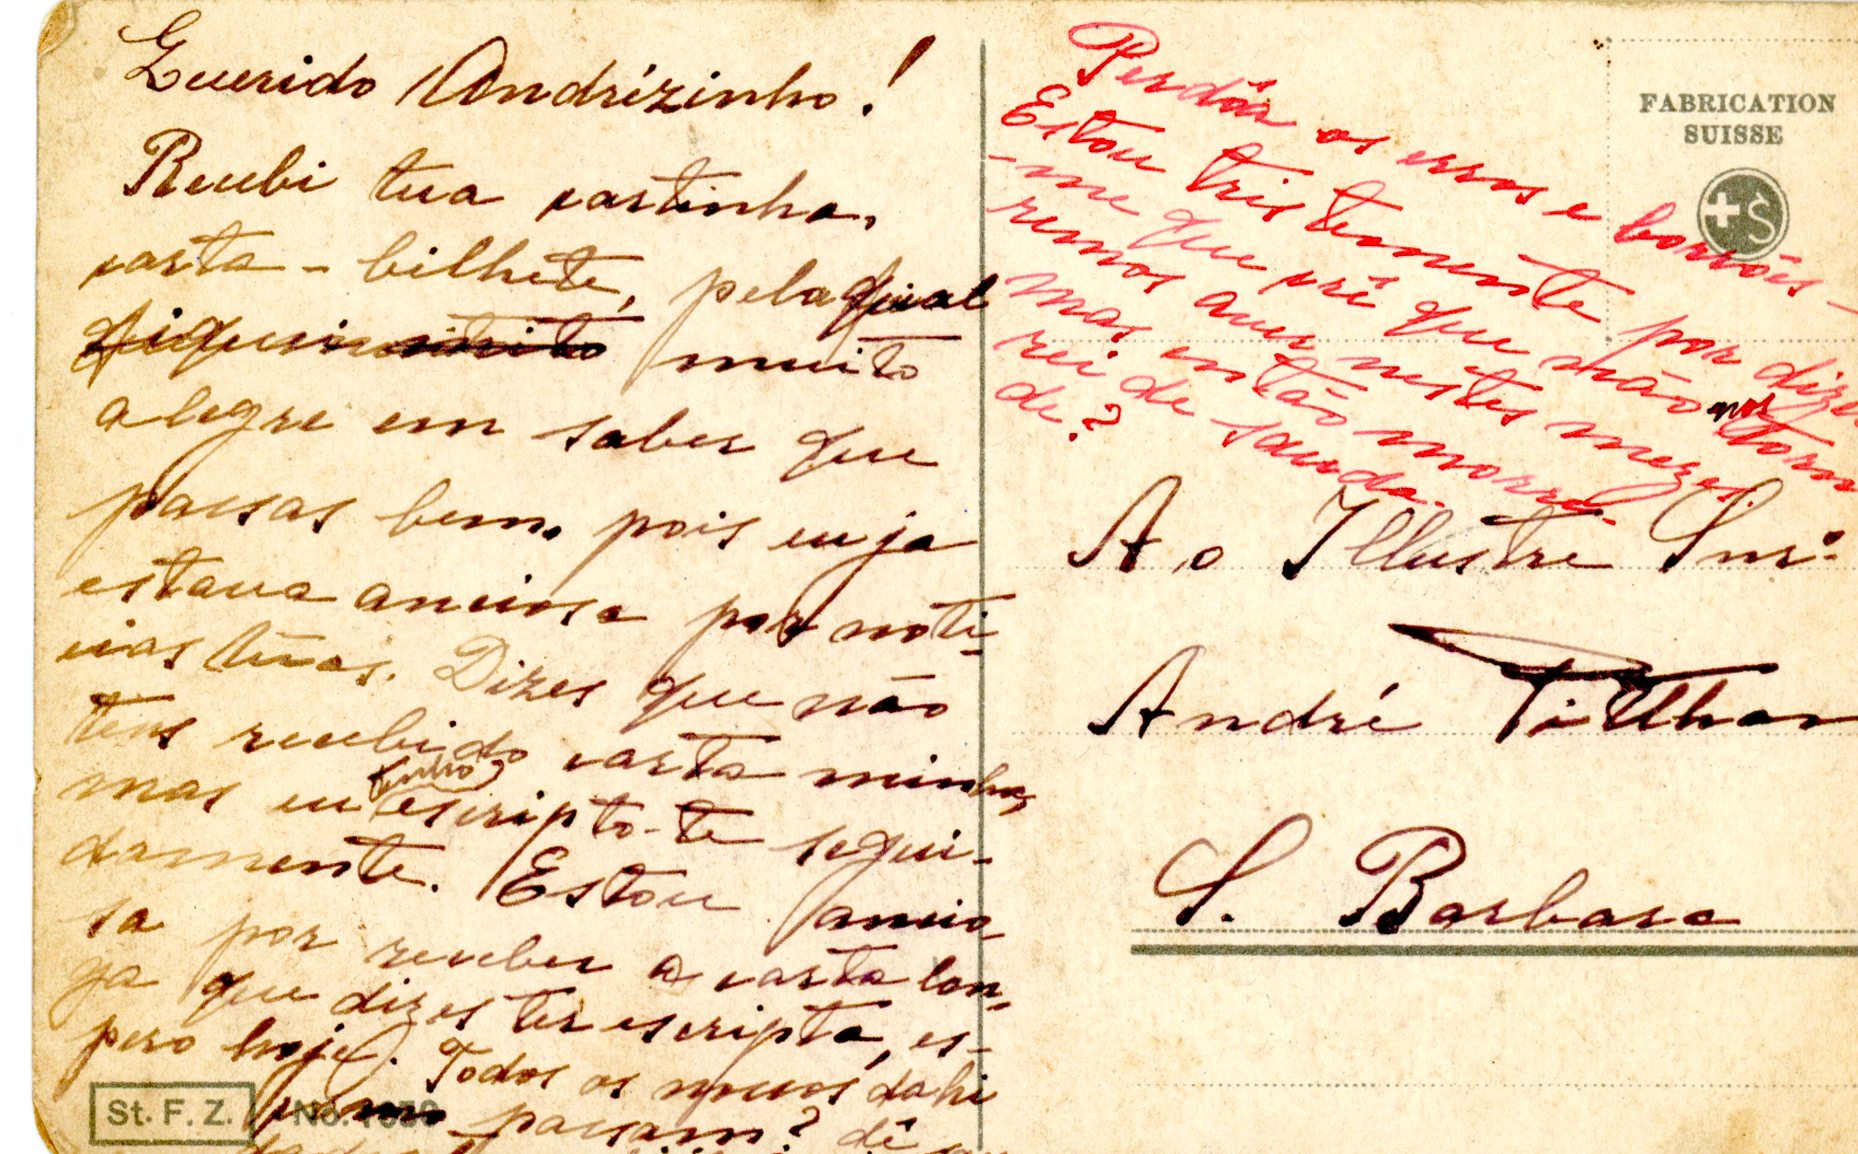 Querido Andrézinho!
Recebi tua cartinha,
carta-bilhete, pela qual
fiquei muito
alegre em saber que
passas bem, pois eu ja
estava anciosa por noti-
cias túas. Dizes que não
tens recebido carta minha,
mas eu tenho escripto-te segui-
damente. Estou ancio-
sa por receber a carta lon-
ga que dizes ter escripta, es-
pero hoje. Todos os nossos dahi
como passam? dê
St. F. Z. No.
Perdôa os erros e borrões-
Estou tristemente por dize
-me que crê que não nos torna
remos a ver nestes mezes
mas então morre-
rei de sauda-
de?
FABRICATION
SUISSE
+S
Ao Illustre Snr.
André Tilthor
S. Barbara